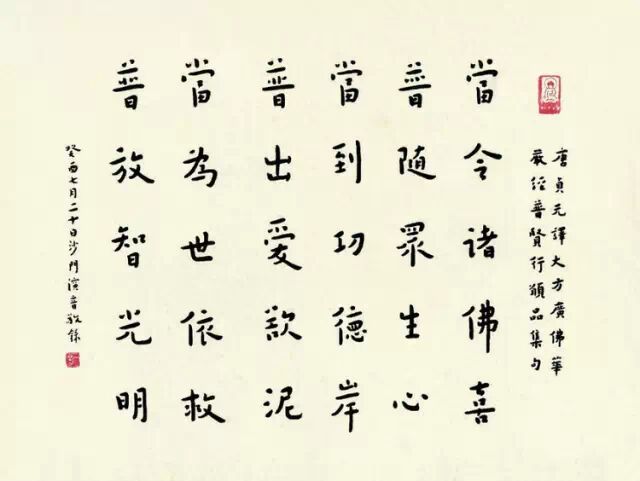 唐貞元譯大方廣佛華
嚴經普賢行願品集句
當令諸佛喜
普随眾生心
當到功德岸
普出愛欲泥
當為世依救
普放智光明
癸酉七月二十日沙門演音敬錄